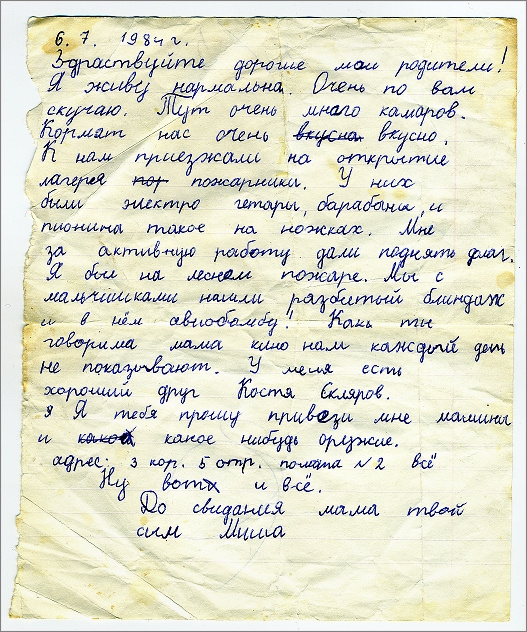 6. 7. 1984 г.
Здраствуйте дорогие мои родители!
Я живу нармальна. Очень по вам
скучаю. Тут очень много камаров.
Кормят нас очень вкусна вкусно.
К нам приезжали на открытие
лагеря пор пожарники. У них
были электро гетары, барабаны, и
пионина такое на ножках. Мне
за активную работу дали поднять флаг.
Я был на лесном пожаре. Мы с
мальчишками нашли разбитый блиндаж
и в нём авиобамбу! Кань ты
говорила мама кино нам каждый день
не показывают. У меня есть
хороший друг Костя Скляров.
Я тебя прошу привези мне машины
и какое нибудь оружие.
адрес: 3 кор. 5 отр. помата №2 всё
Ну вот и всё.
До свидания мама твой
сын Миша